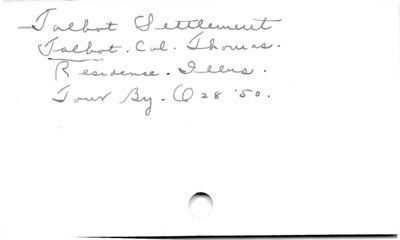 Talbot Settlement
Talbot. Col. Thomas.
Residence. Illus.
Tour By. O 28 '50.